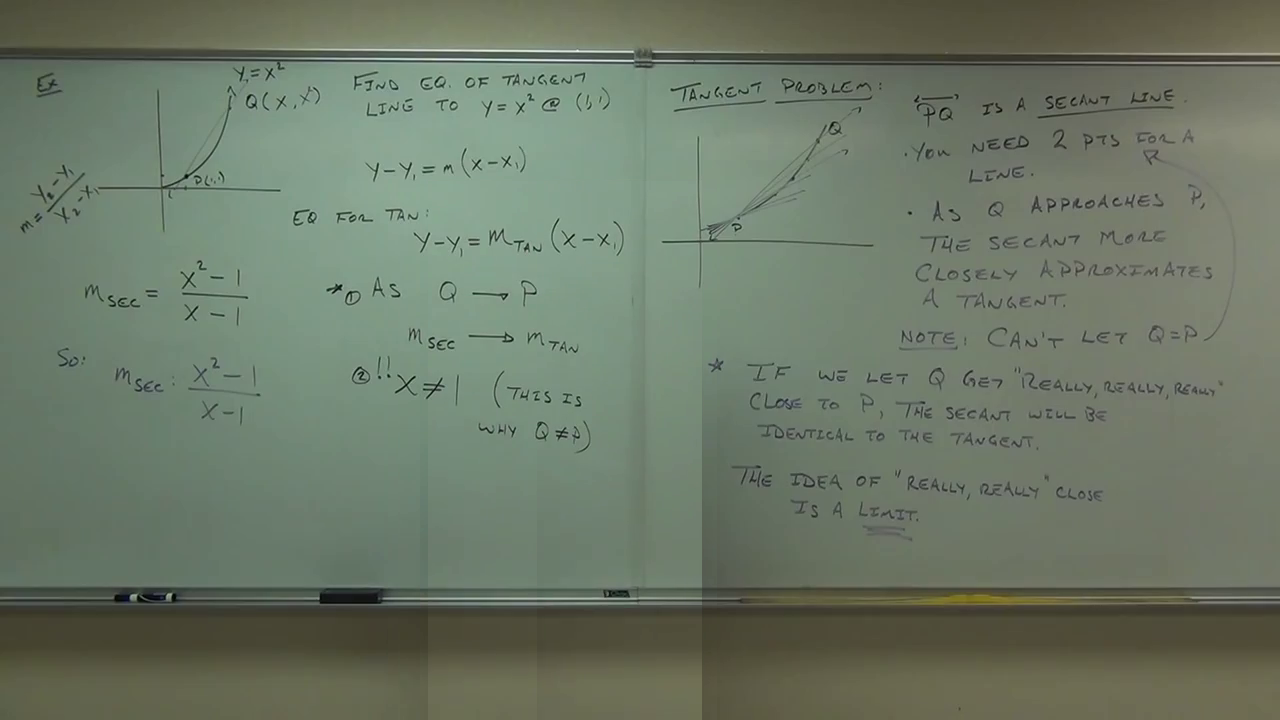 Ex
Y=X²
Q(X, X²)
P(1,1)
m = Y₂-Y₁ / X₂-X₁
m_SEC = X²-1 / X-1
SO:
m_SEC: X²-1 / X-1
FIND EQ. OF TANGENT
LINE TO Y=X² @ (1,1)
Y-Y₁=m(X-X₁)
EQ FOR TAN:
Y-Y₁=M_TAN(X-X₁)
* ① AS Q → P
m_SEC → m_TAN
② !! X≠1 (THIS IS
WHY Q≠P)
TANGENT PROBLEM:
Q
P
PQ IS A SECANT LINE.
• YOU NEED 2 PTS FOR A
LINE.
• AS Q APPROACHES P,
THE SECANT MORE
CLOSELY APPROXIMATES
A TANGENT.
NOTE: CAN'T LET Q=P
* IF WE LET Q GET "REALLY, REALLY, REALLY"
CLOSE TO P, THE SECANT WILL BE
IDENTICAL TO THE TANGENT.
THE IDEA OF "REALLY, REALLY" CLOSE
IS A LIMIT.